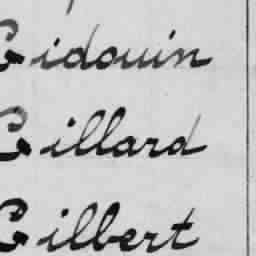 Gidouin
Gillard
Gilbert